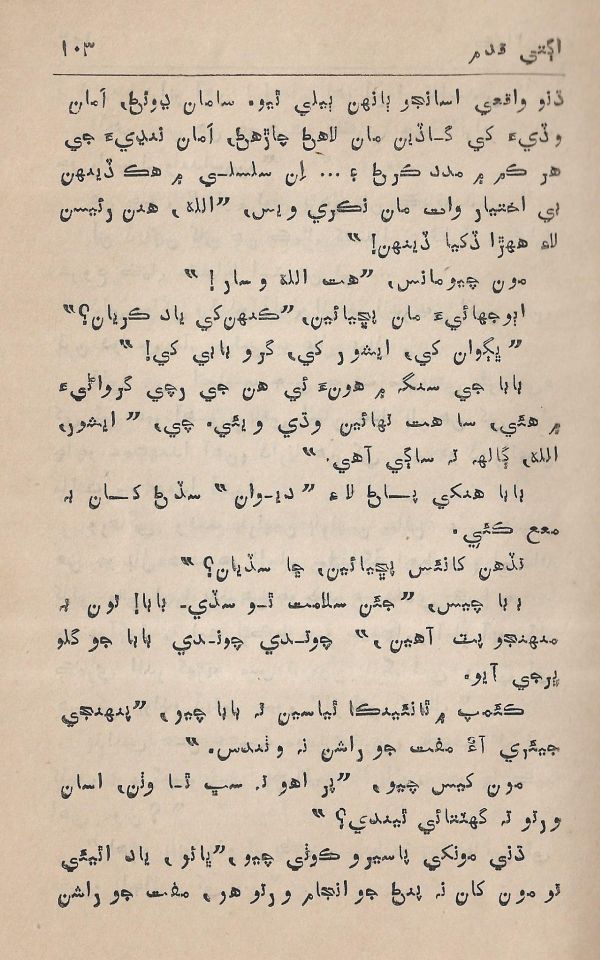 اڳتي قدم ١٠٣
ڏنو واقعي اسانجو ٻانهن ٻيلي ٿيو۔ سامان ڍوئڻ، اَمان
وڏيءَ کي گاڏين مان لاهڻ چاڙهڻ، اَمان ننڍيءَ جي
هر ڪم ۾ مدد ڪرڻ ۽ ... اِن سلسلي ۾ هڪ ڏينهن
بي اختيار وات مان نڪري ويس، ”الله، هنن رئيسن
لاءِ ههڙا ڏکيا ڏينهن!“
مون چيومانس، ”هت الله وسار!“
اٻوجهائيءَ مان پڇيائين، ”ڪنهن کي ياد ڪريان؟“
”ڀڳوان کي، ايشور کي، گرو بابي کي!“
بابا جي سنگہ ۾ هونءَ ئي هن جي رچي گرواڻيءَ
۾ هئي، سا هت تهائين وڌي ويئي۔ چي، ”ايشور،
الله، ڳالهہ تہ ساڳي آهي۔“
بابا هنکي پاڻ لاءِ ”ديوان“ سڏڻ کان بہ
منع ڪئي۔
تڏهن کانئس پڇيائين، ڇا سڏيان؟“
بابا چيس، ”جئن سلامت ٿو سڏي۔ بابا! تون بہ
منهنجو پٽ آهين،“ چوندي چوندي بابا جو گلو
ڀرجي آيو۔
ڪئمپ ۾ ٿانئيڪا ٿياسين تہ بابا چيو، ”پنهنجي
جيئري آءٌ مفت جو راشن نہ وٺندس۔“
مون کيس چيو، ”پر اهو تہ سڀ ٿا وٺن، اسان
ورتو تہ گهٽتائي ٿيندي؟“
ڌڻي مونکي پاسيرو ڪوٺي چيو، ”ڀائو، ياد اٿيئي
تو مون کان نہ پنڻ جو انجام ورتو هو، مفت جو راشن